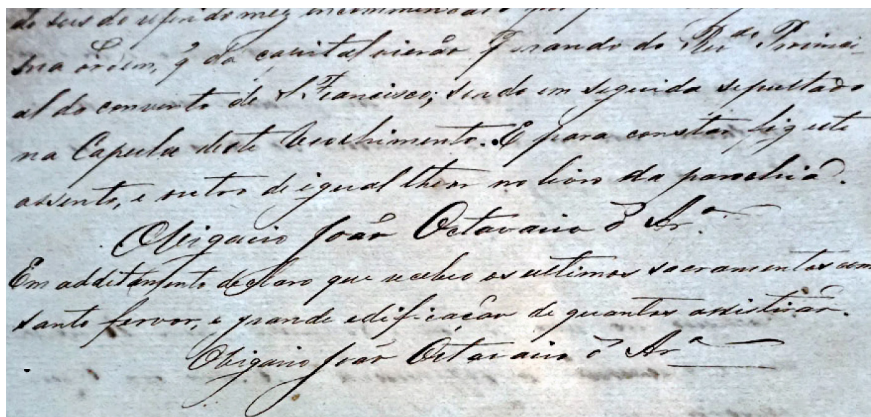 sua órdem, q̃ da capital vierão p.r mando do Rev.do Provinci-
al do convento de S. Francisco; sendo em seguida sepultado
na Capella deste Recolhimento. E para constar fiz este
assento, e outro de igual theor no livro da parochia.
O Vigario João Octavaiio d' Ar.o
Em additamento declaro que recebeo os ultimos sacramentos com
santo fervor, e grande edificação de quantos assistirão.
O Vigario João Octavaiio d' Ar.o